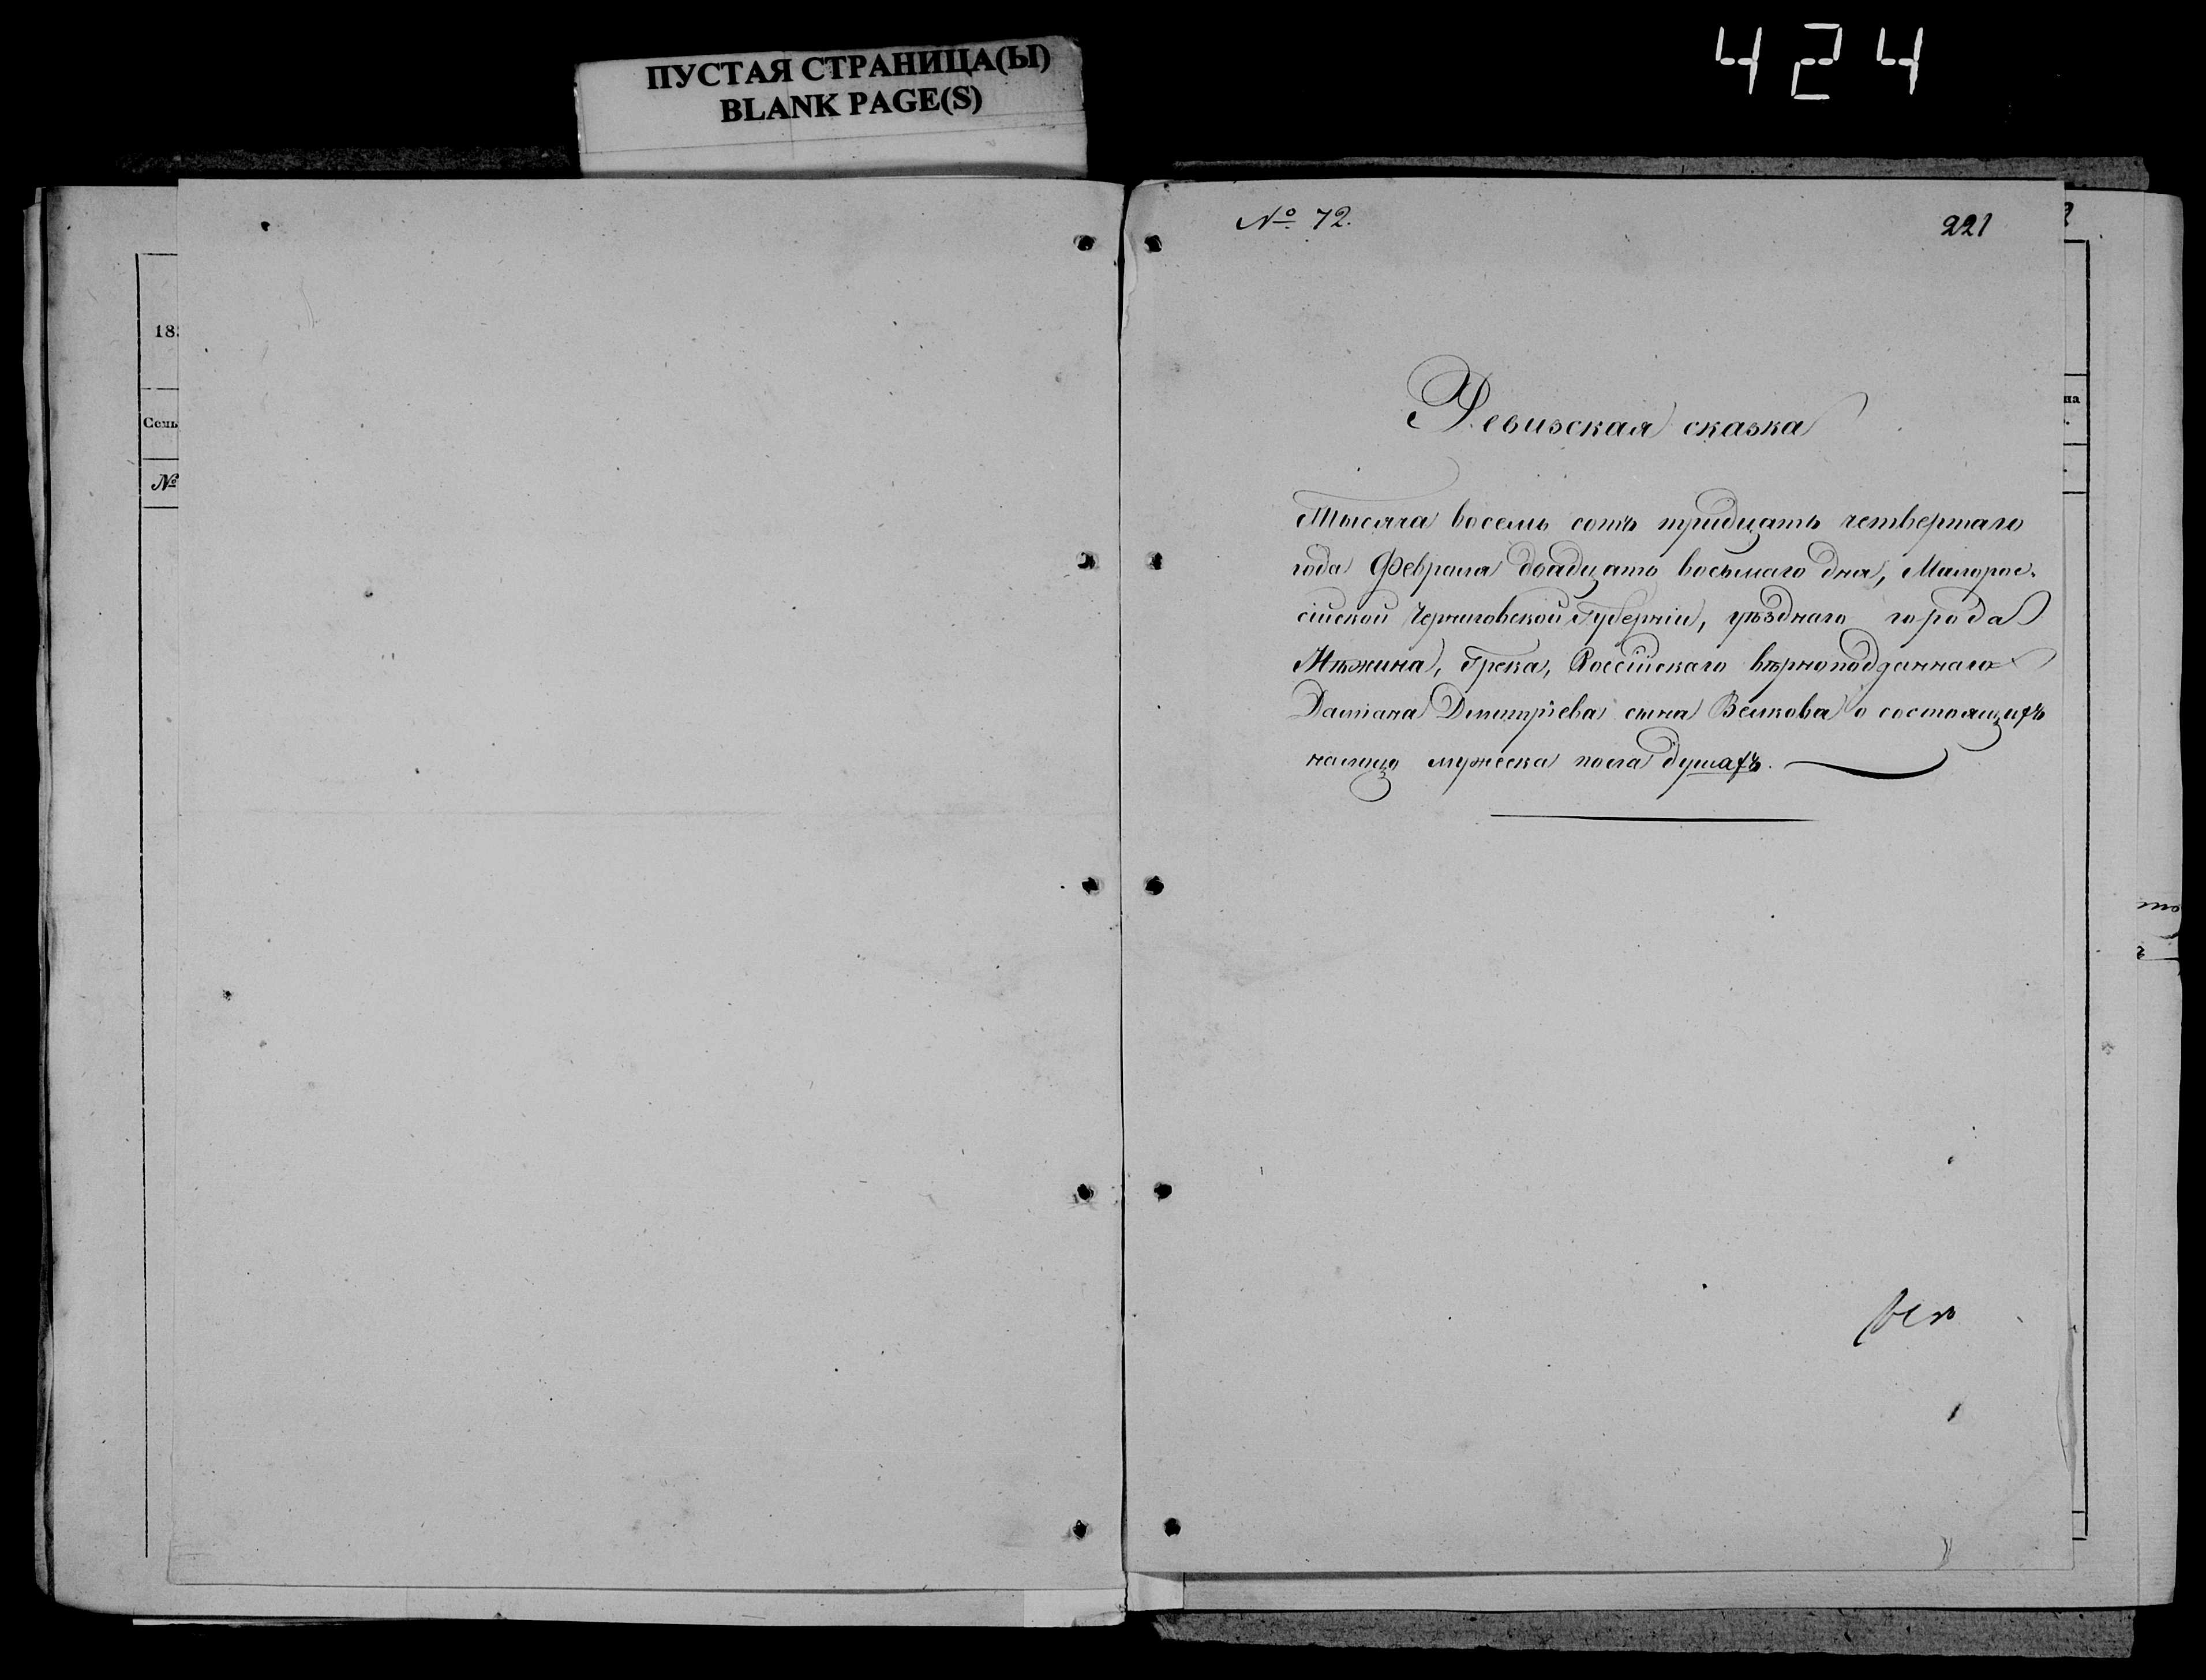 424
ПУСТАЯ СТРАНИЦА(Ы)
BLANK PAGE(S)
№ 72.
221
18
Семь
№
на
Ревизская сказка
Тысяча восемь сотъ тридцать четвертаго
года Февраля двадцать восьмаго дня, Малорос-
сійской Черниговской Губерніи, уѣзднаго города
Нѣжина, Грека, Россійскаго вѣрноподданнаго
Даміана Дмитріева сына Велкова о состоящихъ
налицо мужеска пола душахъ.